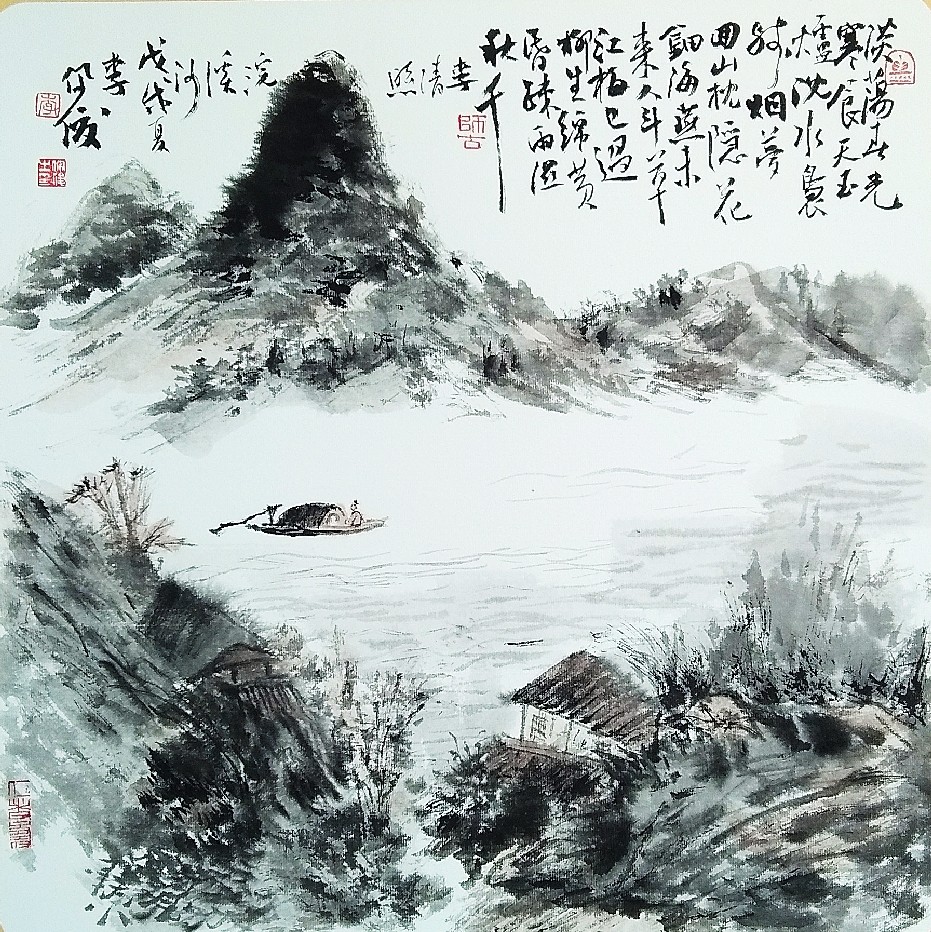 淡蕩春光
寒食天玉
爐沈水裊
残烟夢
回山枕隐花
鈿海燕未
来人斗草
江梅已過
柳生綿黄
昏疎雨湿
秋千
李清照
浣溪沙
戊戌夏
李
师古
李